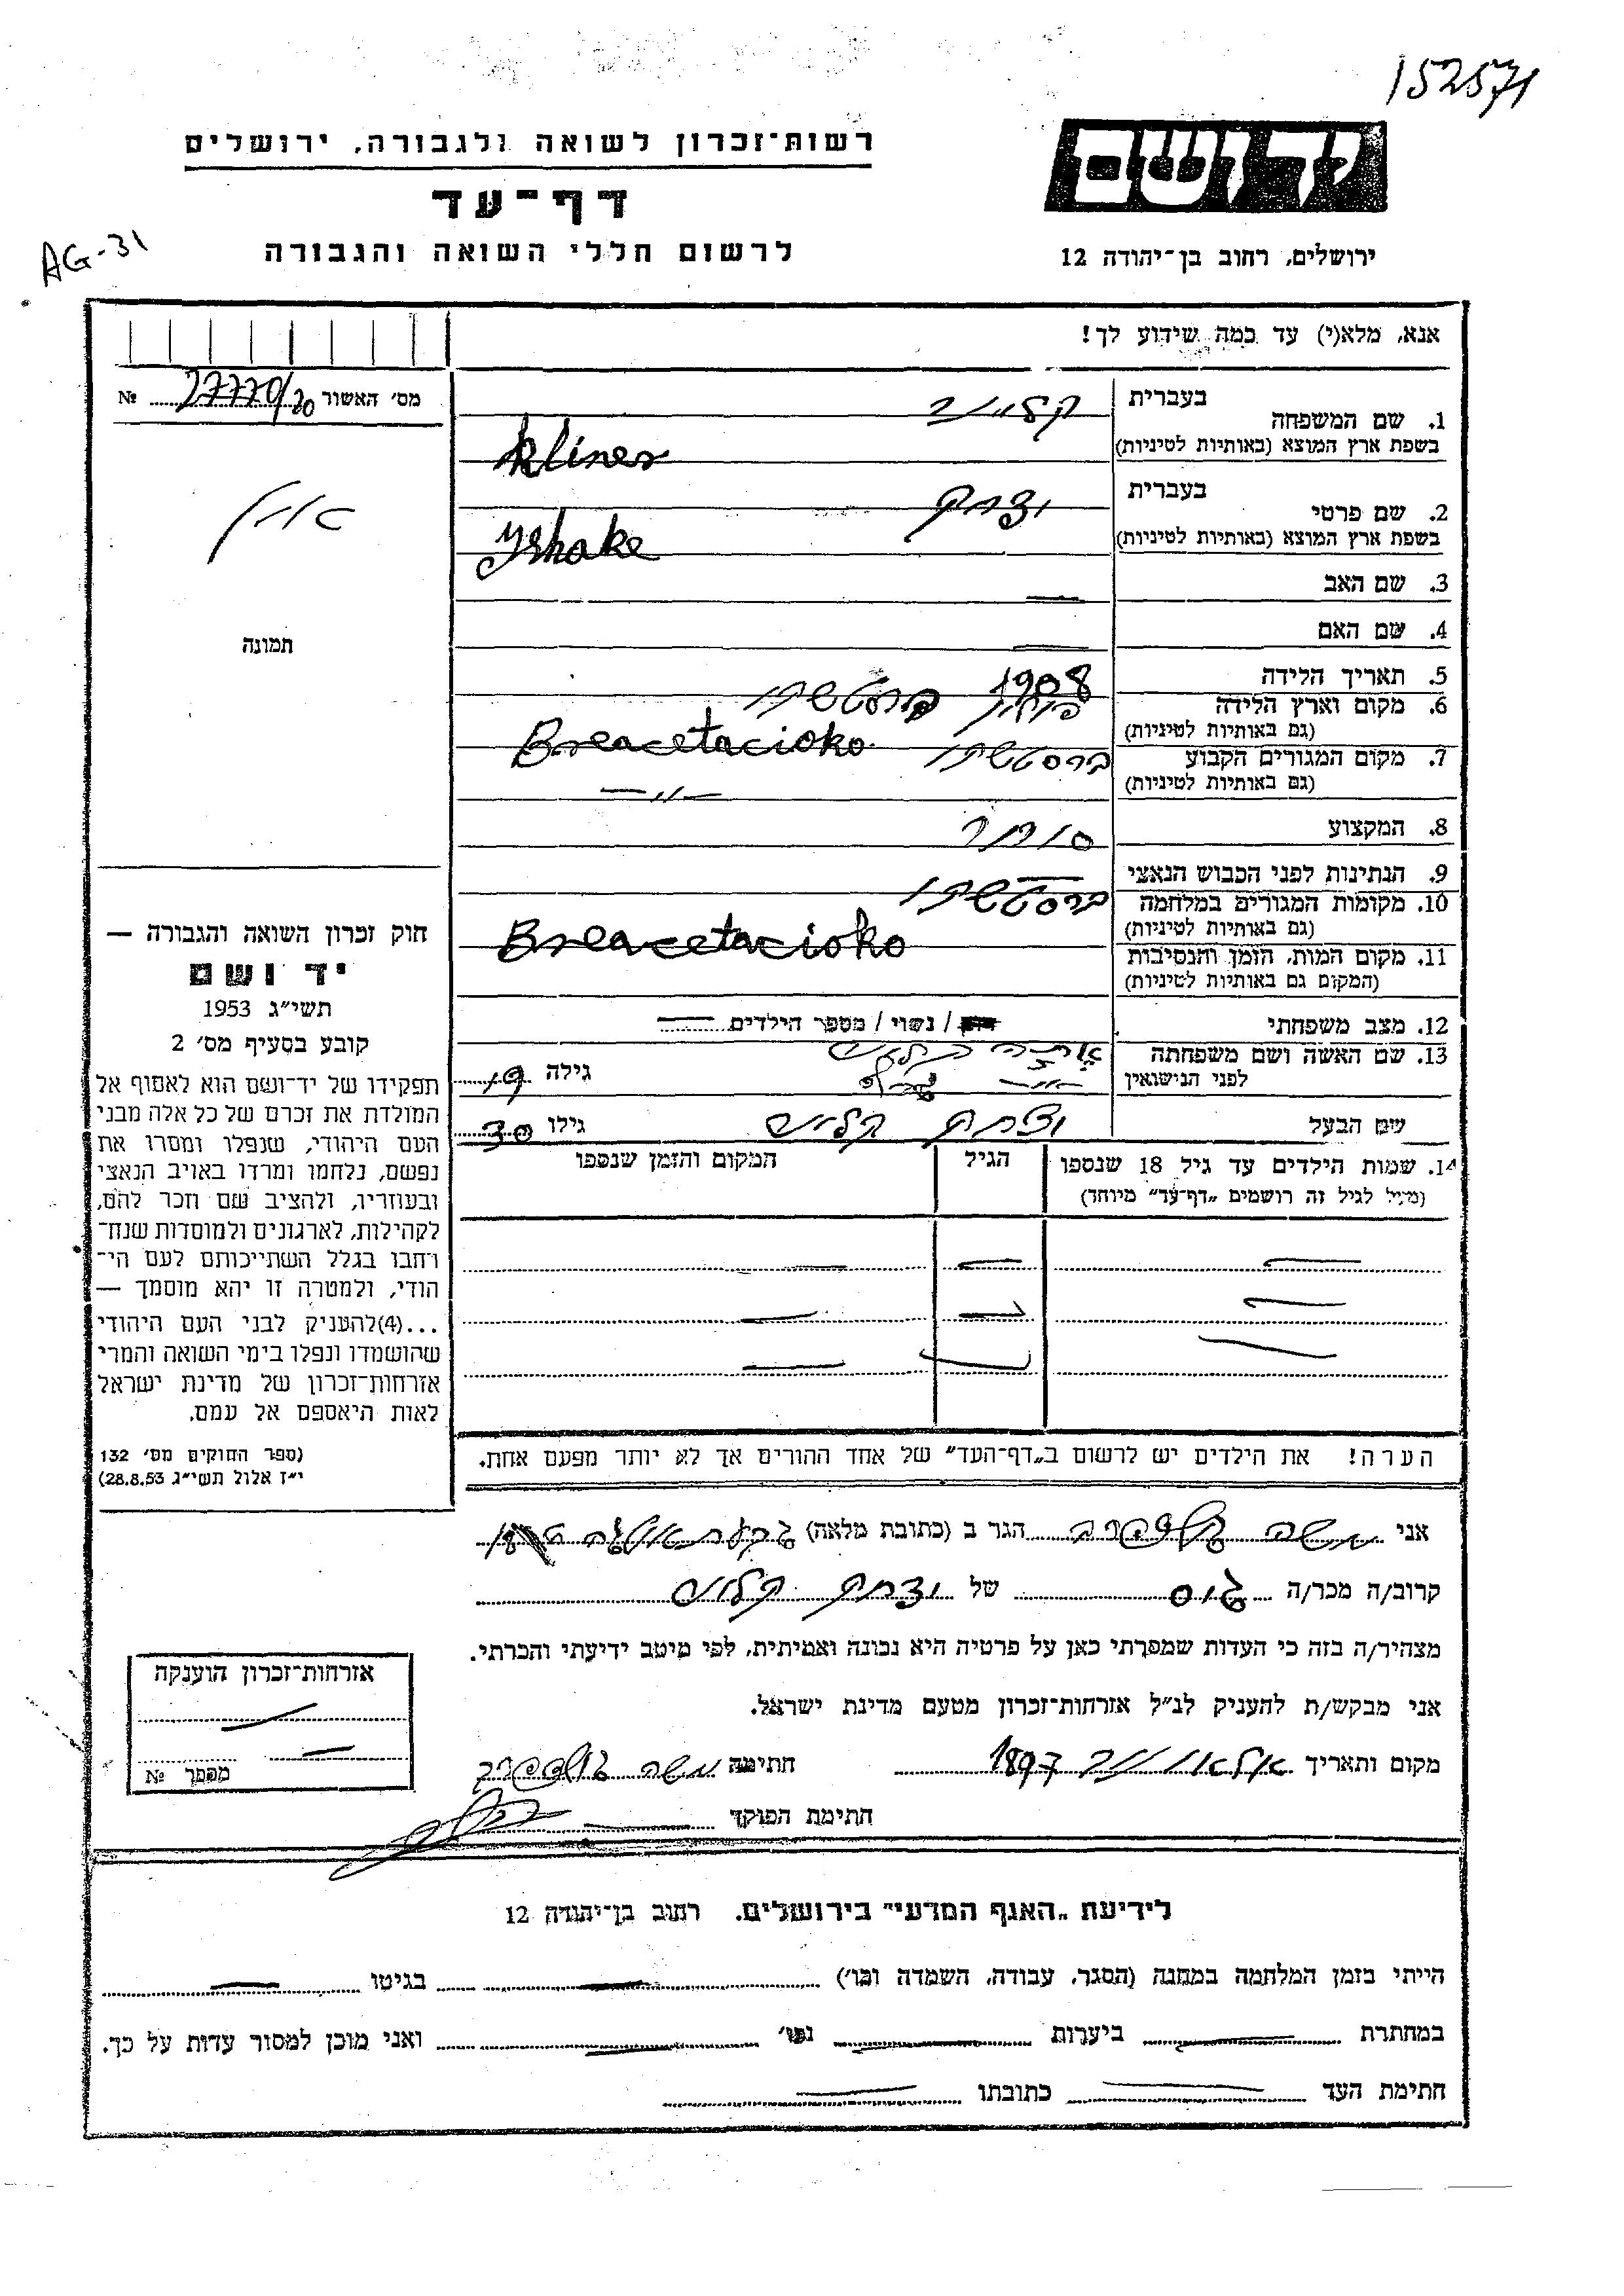 152571
רשות־זכרון לשואה ולגבורה, ירושלים
דף־עד
לרשום חללי השואה והגבורה
יד ושם
ירושלים, רחוב בן־יהודה 12
AG-31
אנא, מלא(י) עד כמה שידוע לך!
מס׳ האשור № 27770/20
אין
תמונה
1. שם המשפחה
בעברית
בשפת ארץ המוצא (באותיות לטיניות)
kliner
2. שם פרטי
בעברית יצחק
בשפת ארץ המוצא (באותיות לטיניות) Yshake
3. שם האב —
4. שם האם —
5. תאריך הלידה 1908
6. מקום וארץ הלידה
(גם באותיות לטיניות) Breacetacioko
7. מקום המגורים הקבוע
(גם באותיות לטיניות) —״—
8. המקצוע סוחר
9. הנתינות לפני הכבוש הנאצי —
10. מקומות המגורים במלחמה
(גם באותיות לטיניות) Breacetacioko
11. מקום המות, הזמן והנסיבות
(המקום גם באותיות לטיניות)
12. מצב משפחתי נשוי / מספר הילדים —
13. שם האשה ושם משפחתה
לפני הנישואין גילה 19
שם הבעל יצחק גילו 30
14. שמות הילדים עד גיל 18 שנספו הגיל המקום והזמן שנספו
(מעל לגיל זה רושמים „דף־עד״ מיוחד)
— — —
— — —
— — —
הערה! את הילדים יש לרשום ב„דף־העד״ של אחד ההורים אך לא יותר מפעם אחת.
חוק זכרון השואה והגבורה —
יד ושם
תשי״ג 1953
קובע בסעיף מס׳ 2
תפקידו של יד־ושם הוא לאסוף אל
המולדת את זכרם של כל אלה מבני
העם היהודי, שנפלו ומסרו את
נפשם, נלחמו ומרדו באויב הנאצי
ובעוזריו, ולהציב שם וזכר להם,
לקהילות, לארגונים ולמוסדות שנח־
רחבו בגלל השתייכותם לעם הי־
הודי, ולמטרה זו יהא מוסמך —
...(4)להעניק לבני העם היהודי
שהושמדו ונפלו בימי השואה והמרי
אזרחות־זכרון של מדינת ישראל
לאות היאספם אל עמם.
(ספר החוקים מס׳ 132
י״ז אלול תשי״ג 28.8.53)
אני משה הגר ב (כתובת מלאה)
קרוב/ה מכר/ה גיס של יצחק
מצהיר/ה בזה כי העדות שמסרתי כאן על פרטיה היא נכונה ואמיתית, לפי מיטב ידיעתי והכרתי.
אני מבקש/ת להעניק לנ״ל אזרחות־זכרון מטעם מדינת ישראל.
מקום ותאריך חתימה משה
חתימת הפוקד
אזרחות־זכרון הוענקה
—
מספר № —
לידיעת „האגף המדעי״ בירושלים. רחוב בן־יהודה 12
הייתי בזמן המלחמה במחנה (הסגר, עבודה, השמדה וכו׳) — בגיטו —
במחתרת — ביערות — וכו׳ — ואני מוכן למסור עדות על כך.
חתימת העד — כתובתו —